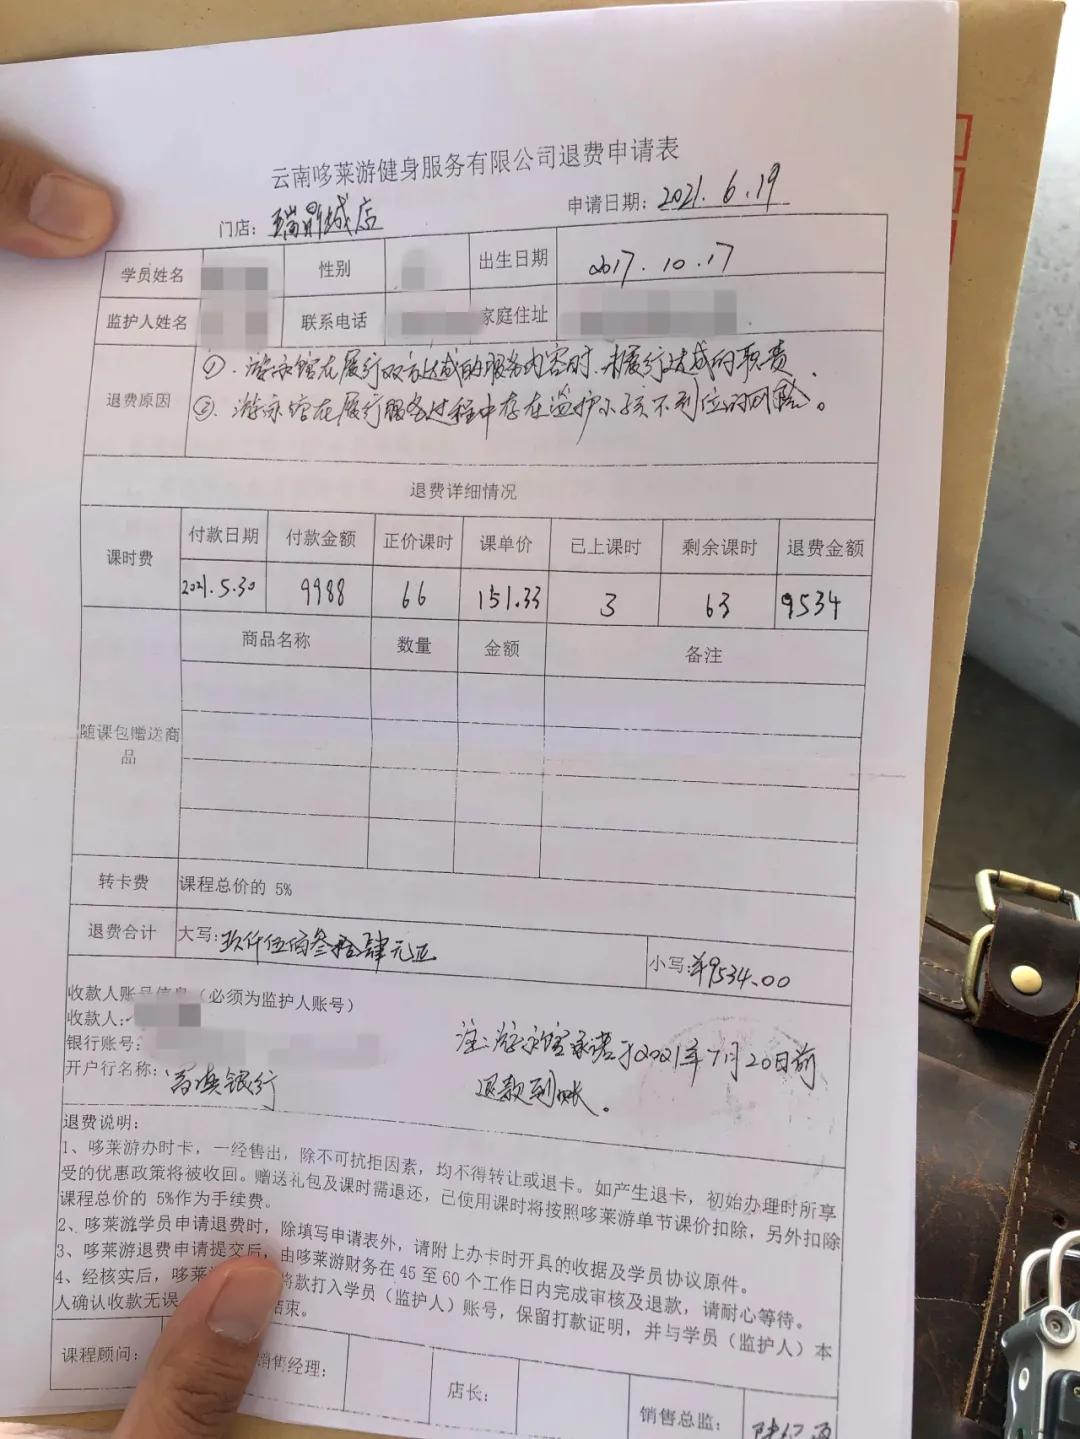 云南哆莱游健身服务有限公司退费申请表
门店：瑞鼎城店 申请日期：2021.6.19
学员姓名 性别 出生日期 2017.10.17
监护人姓名 联系电话 家庭住址
退费原因 ①.游泳馆在履行双方达成的服务内容时.未履行达成的职责.
②.游泳馆在履行服务过程中存在监护小孩不到位的风险。
退费详细情况
课时费 付款日期 付款金额 正价课时 课单价 已上课时 剩余课时 退费金额
2021.5.30 9988 66 151.33 3 63 9534
随课包赠送商品 商品名称 数量 金额 备注
转卡费 课程总价的 5%
退费合计 大写：玖仟伍佰叁拾肆元正 小写：¥9534.00
收款人账号信息（必须为监护人账号）
收款人：
银行账号：
开户行名称：富滇银行
注：游泳馆承诺于2021年7月20日前
退款到账。
退费说明：
1、哆莱游办时卡，一经售出，除不可抗拒因素，均不得转让或退卡。如产生退卡，初始办理时所享
受的优惠政策将被收回。赠送礼包及课时需退还，已使用课时将按照哆莱游单节课价扣除，另外扣除
课程总价的 5%作为手续费。
2、哆莱游学员申请退费时，除填写申请表外，请附上办卡时开具的收据及学员协议原件。
3、哆莱游退费申请提交后，由哆莱游财务在 45 至 60 个工作日内完成审核及退款，请耐心等待。
4、经核实后，哆莱 将款打入学员（监护人）账号，保留打款证明，并与学员（监护人）本
人确认收款无误 结束。
课程顾问： 销售经理： 店长： 销售总监：